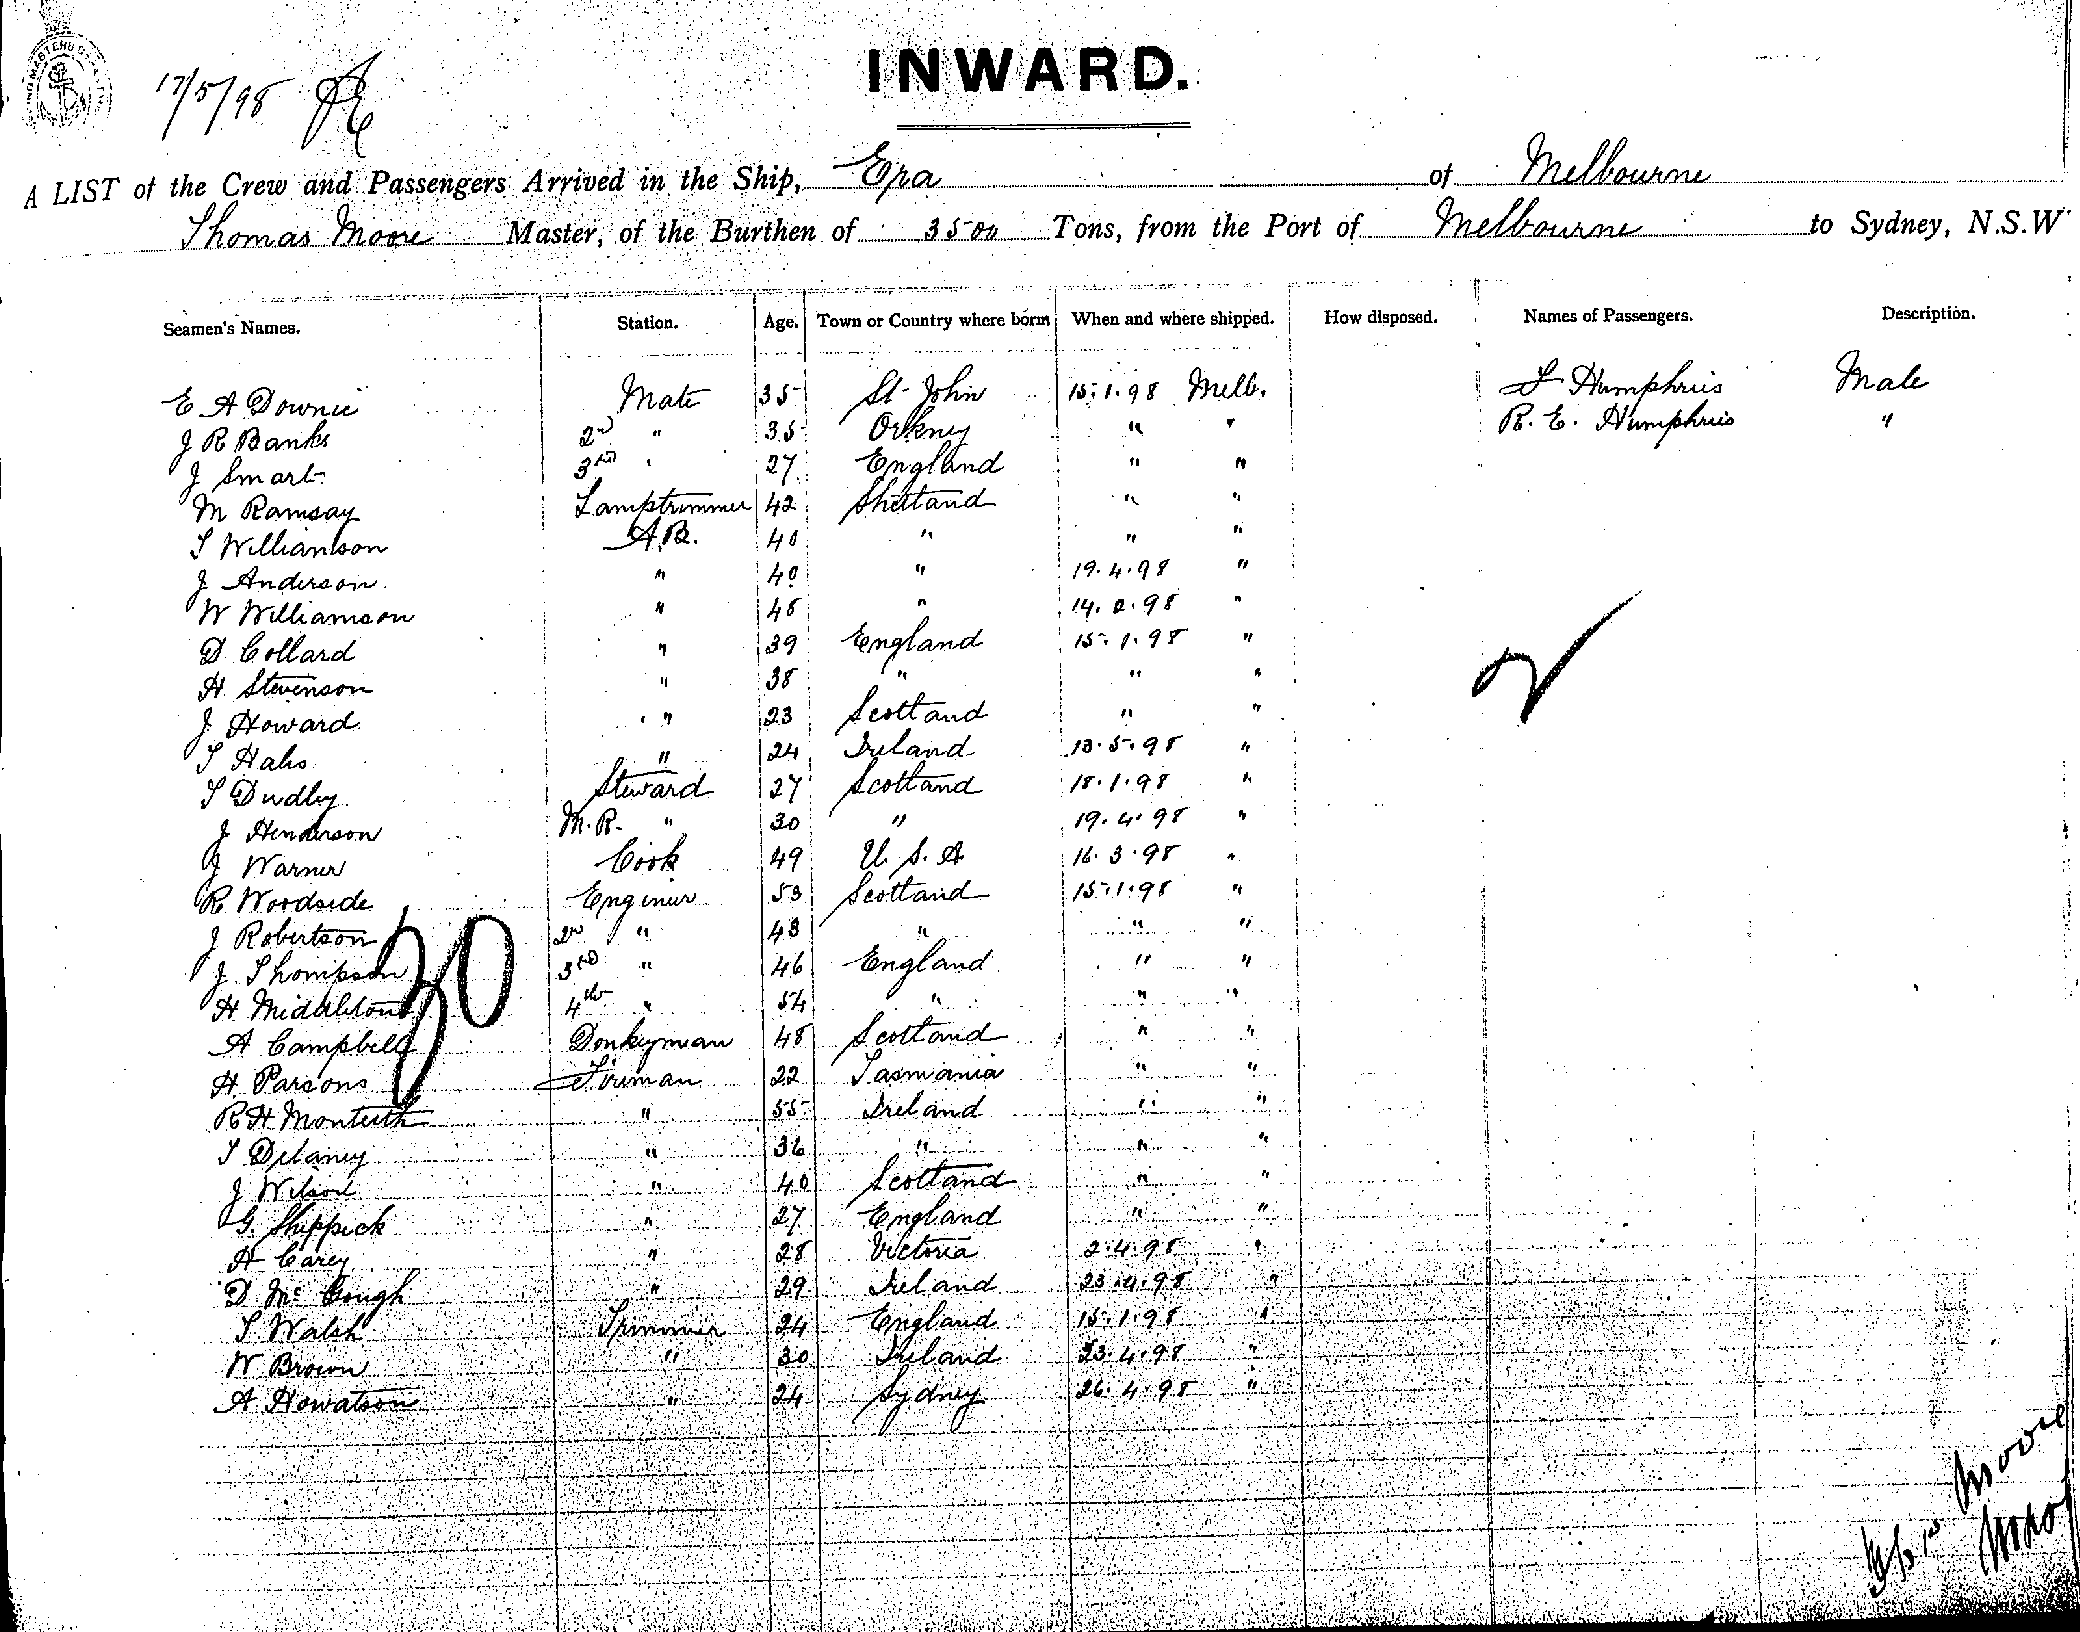 17/5/98
INWARD.
A LIST of the Crew and Passengers Arrived in the Ship, Era of Melbourne
Thomas Moore Master, of the Burthen of 3500 Tons, from the Port of Melbourne to Sydney, N.S.W
Seamen's Names. Station. Age. Town or Country where born When and where shipped. How disposed. Names of Passengers. Description.
E A Downie Mate 35 St John 15.1.98 Melb. T Humphris Male
J R Banks 2nd " 35 Orkney " " R. E. Humphris "
J Smart 3rd " 27 England " "
M Ramsay Lamptrimmer 42 Shetland " "
T Williamson A.B. 40 " " "
J Anderson " 40 " 19.4.98 "
W Williamson " 48 " 14.2.98 "
D Collard " 39 England 15.1.98 "
H Stevenson " 38 " " "
J Howard " 23 Scotland " "
T Hales " 24 Ireland 13.5.98 "
T Dudley Steward 27 Scotland 18.1.98 "
J Henderson M.R. " 30 " 19.4.98 "
J Warner Cook 49 U.S.A 16.3.98 "
R Woodside Engineer 53 Scotland 15.1.98 "
J Robertson 2nd " 43 " " "
J Thompson 3rd " 46 England " "
H Middleton 4th " 54 " " "
A Campbell Donkeyman 48 Scotland " "
H Parsons Fireman 22 Tasmania " "
R H Monteith " 55 Ireland " "
T Delaney " 36 " " "
J Wilson " 40 Scotland " "
G. Shippick " 27 England " "
H Carey " 28 Victoria 2.4.98 "
D McGough " 29 Ireland 23.4.98 "
T Walsh Trimmer 24 England 15.1.98 "
W Brown " 30 Ireland 23.4.98 "
A Howatson " 24 Sydney 26.4.98 "
30
Moore